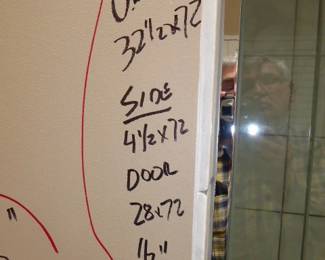 32 1/2 x 72
SIDE
4 1/2 x 72
DOOR
28 x 72
"